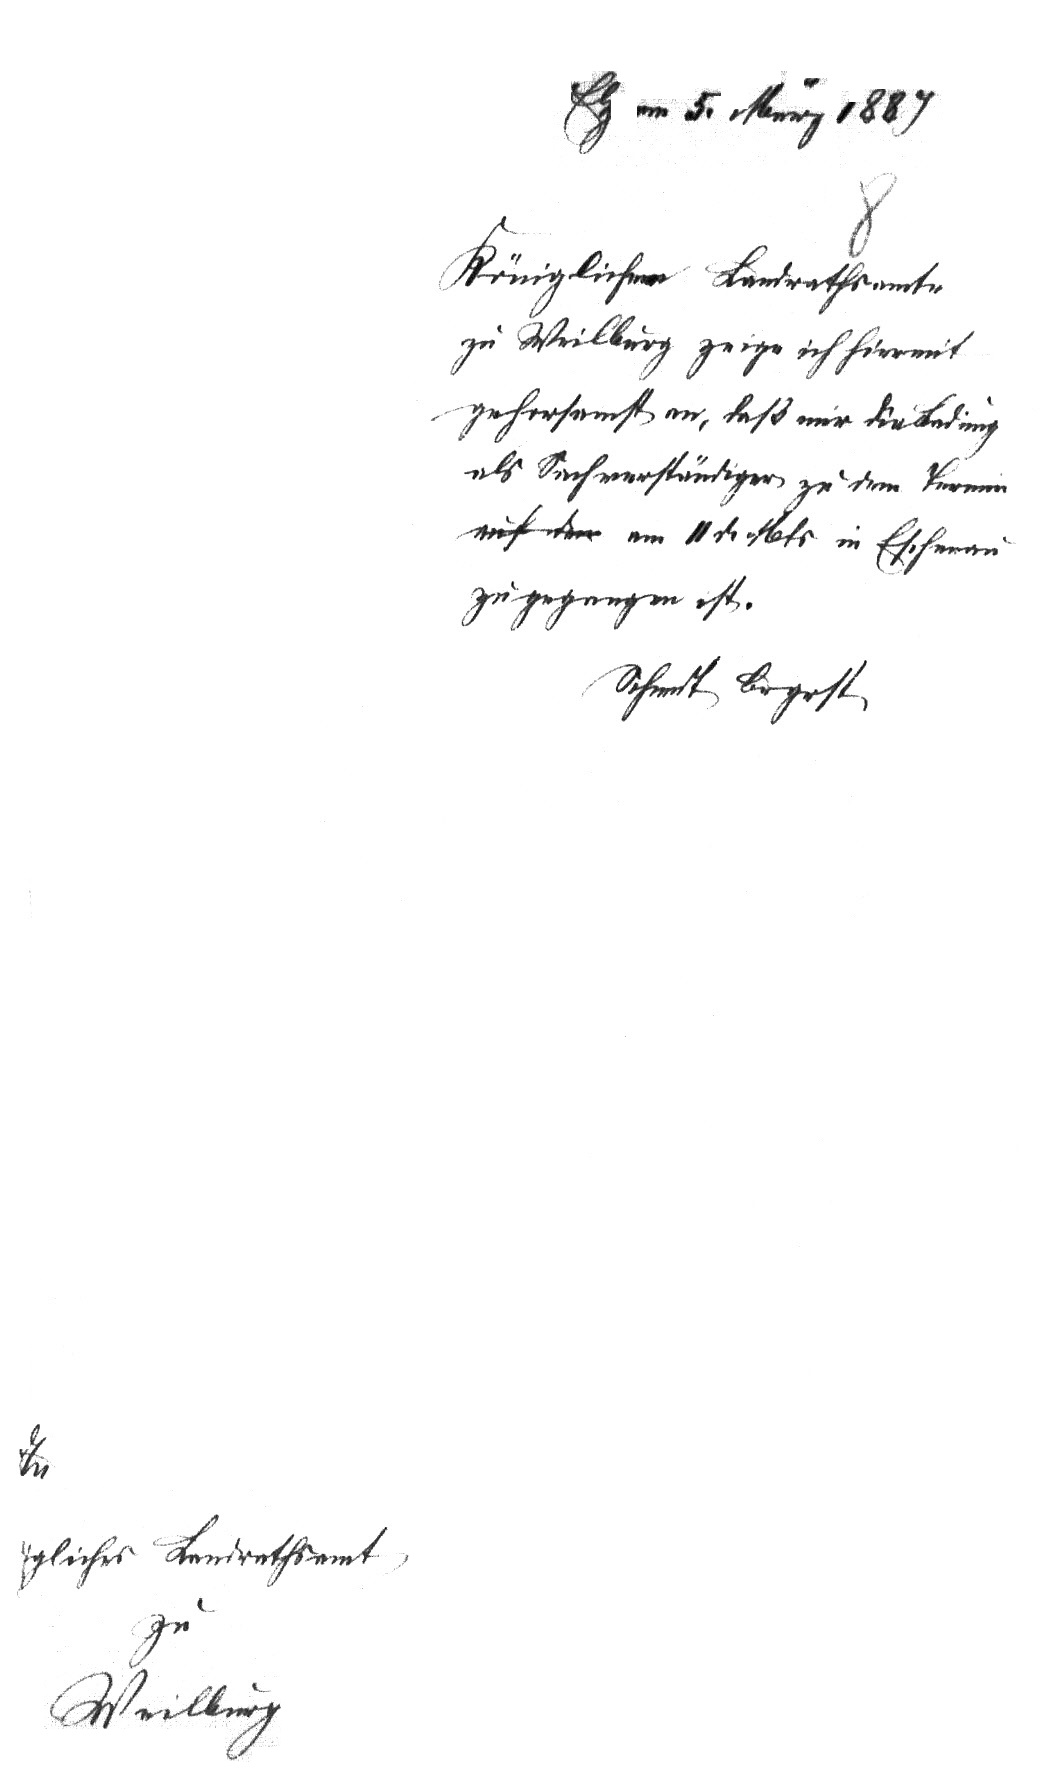 Elz am 5. März 1887
8
Königlichem Landrathsamte
zu Weilburg zeige ich hiermit
gehorsamst an, daß mir die Ladung
als Sachverständiger zu dem Termin
auf den am 11 d. Mts in Eschenau
zugegangen ist.
Schmdt Brgrst
An
igliches Landrathsamt
zu
Weilburg